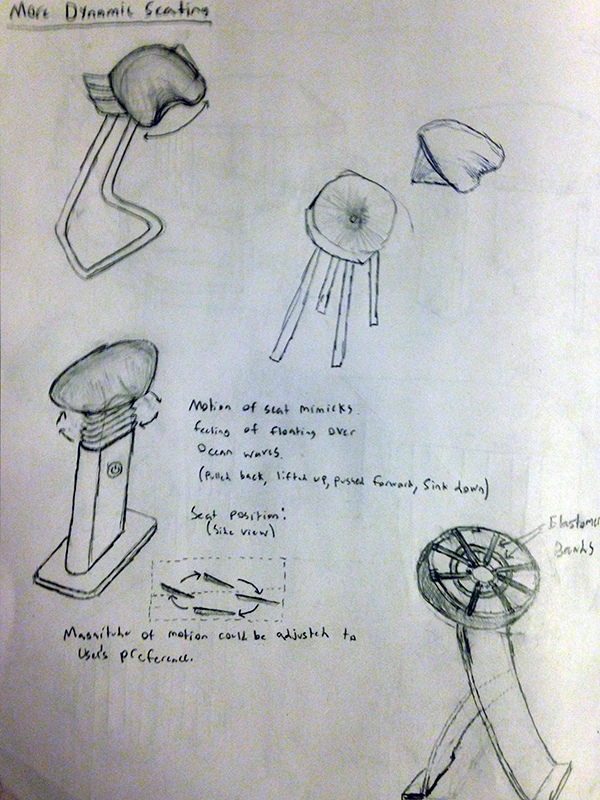 More Dynamic Seating
Motion of seat mimicks
feeling of floating over
Ocean waves.
(Pulled back, lifted up, pushed forward, Sink down)
Seat position:
(Side view)
Magnitude of motion could be adjusted to
User's preference.
Elastomer
Bands